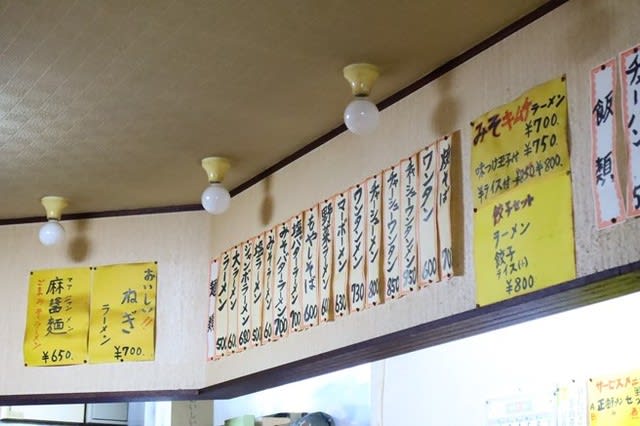 麻醤麺
マアジャンメン
ごまみそラーメン
¥650.
おいしい!!
ねぎ
ラーメン
¥700.
麺類
ラーメン
大ラーメン
ジャンボラーメン 680
塩ラーメン
みそラーメン
みそバターラーメン 700
塩バターラーメン 700
もやしそば 600
野菜ラーメン
マーボーメン 630
ワンタンメン 730
チャーシューメン 800
チャーシューワンタンメン 850
チャーシューワンタン
ワンタン 600
焼そば
みそキムチラーメン
¥700.
味つけ玉子付 ¥750
半ライス付 ¥800.
餃子セット
ラーメン
餃子
ライス(小)
¥800
飯類
チャーハン
サービスメニ